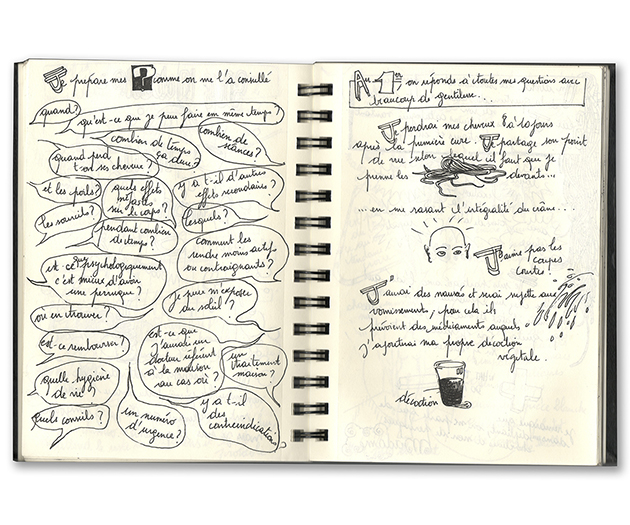 Je prépare mes ? comme on me l'a conseillé
quand?
qu'est-ce que je peux faire en même temps?
combien de temps
ça dure?
combien de
séances?
quand perd
t-on ses cheveux?
et les poils?
quels effets
néfastes
sur le corps?
y a t-il d'autres
effets secondaires?
les sourcils?
lesquels?
pendant combien
de temps?
comment les
rendre moins actifs
ou contraignants?
est-ce que psychologiquement
c'est mieux d'avoir
une perruque?
je peux m'exposer
au soleil?
où en trouver?
est-ce remboursé?
est-ce que
j'aurai un
docteur référent
à la maison
au cas où?
un
traitement
maison?
quelle hygiène
de vie?
quels conseils?
un numéro
d'urgence?
y a t-il
des
contreindications?
Au 1er, on réponde à toutes mes questions avec
beaucoup de gentillesse...
Je perdrai mes cheveux 8 à 10 jours
après la première cure. Je partage son point
de vue selon lequel il faut que je
prenne les devants...
... en me rasant l'intégralité du crâne...
J'aime pas les
coupes
courtes!
J'aurai des nausées et serai sujette aux
vomissements, pour cela ils
prévoient des médicaments auxquels
j'ajouterai ma propre décoction
végétale.
décoction